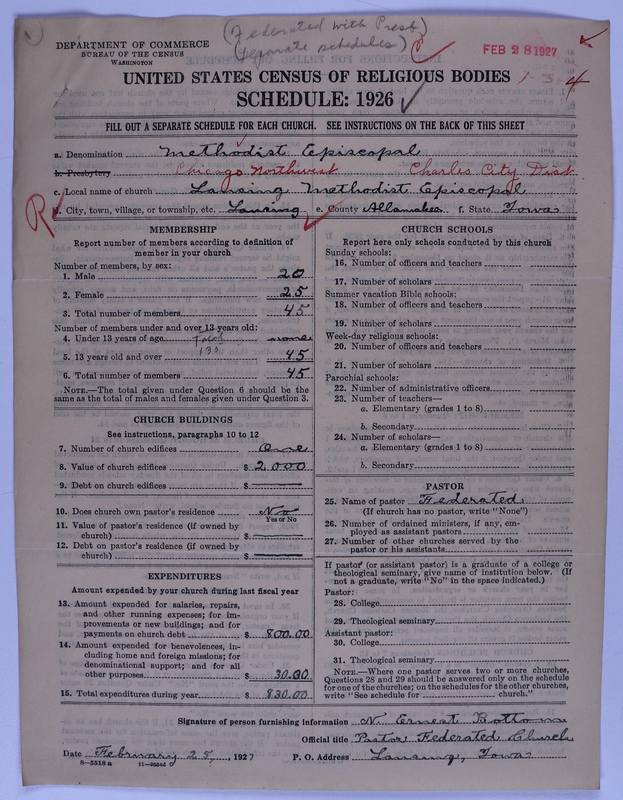 (Federated with Presb)
(separate schedules)
DEPARTMENT OF COMMERCE
BUREAU OF THE CENSUS
WASHINGTON
FEB 28 1927
UNITED STATES CENSUS OF RELIGIOUS BODIES 1-3-4
SCHEDULE: 1926
FILL OUT A SEPARATE SCHEDULE FOR EACH CHURCH. SEE INSTRUCTIONS ON THE BACK OF THIS SHEET
a. Denomination Methodist Episcopal
b. Presbytery Chicago Northwest Charles City Dist
c. Local name of church Lansing Methodist Episcopal
R
d. City, town, village, or township, etc. Lansing, e. County Allamakee f. State Iowa
MEMBERSHIP
Report number of members according to definition of
member in your church
Number of members, by sex:
1. Male 20
2. Female 25
3. Total number of members 45
Number of members under and over 13 years old:
4. Under 13 years of age none
5. 13 years old and over 135 45
6. Total number of members 45
NOTE.—The total given under Question 6 should be the
same as the total of males and females given under Question 3.
CHURCH BUILDINGS
See instructions, paragraphs 10 to 12
7. Number of church edifices One
8. Value of church edifices $ 2,000
9. Debt on church edifices $
10. Does church own pastor's residence No
Yes or No
11. Value of pastor's residence (if owned by
church) $
12. Debt on pastor's residence (if owned by
church) $
EXPENDITURES
Amount expended by your church during last fiscal year
13. Amount expended for salaries, repairs,
and other running expenses; for im-
provements or new buildings; and for
payments on church debt $ 800.00
14. Amount expended for benevolences, in-
cluding home and foreign missions; for
denominational support; and for all
other purposes $ 30.00
15. Total expenditures during year $ 830.00
CHURCH SCHOOLS
Report here only schools conducted by this church
Sunday schools:
16. Number of officers and teachers
17. Number of scholars
Summer vacation Bible schools:
18. Number of officers and teachers
19. Number of scholars
Week-day religious schools:
20. Number of officers and teachers
21. Number of scholars
Parochial schools:
22. Number of administrative officers
23. Number of teachers—
a. Elementary (grades 1 to 8)
b. Secondary
24. Number of scholars—
a. Elementary (grades 1 to 8)
b. Secondary
PASTOR
25. Name of pastor Federated
(If church has no pastor, write "None")
26. Number of ordained ministers, if any, em-
ployed as assistant pastors
27. Number of other churches served by the
pastor or his assistants
If pastor (or assistant pastor) is a graduate of a college or
theological seminary, give name of institution below. (If
not a graduate, write "No" in the space indicated.)
Pastor:
28. College
29. Theological seminary
Assistant pastor:
30. College
31. Theological seminary
NOTE.—Where one pastor serves two or more churches,
Questions 28 and 29 should be answered only on the schedule
for one of the churches; on the schedules for the other churches,
write "See schedule for church."
Signature of person furnishing information N. Ernest Bottom
Official title Pastor Federated Church
Date February 25, 1927 P. O. Address Lansing, Iowa
8-5518 a